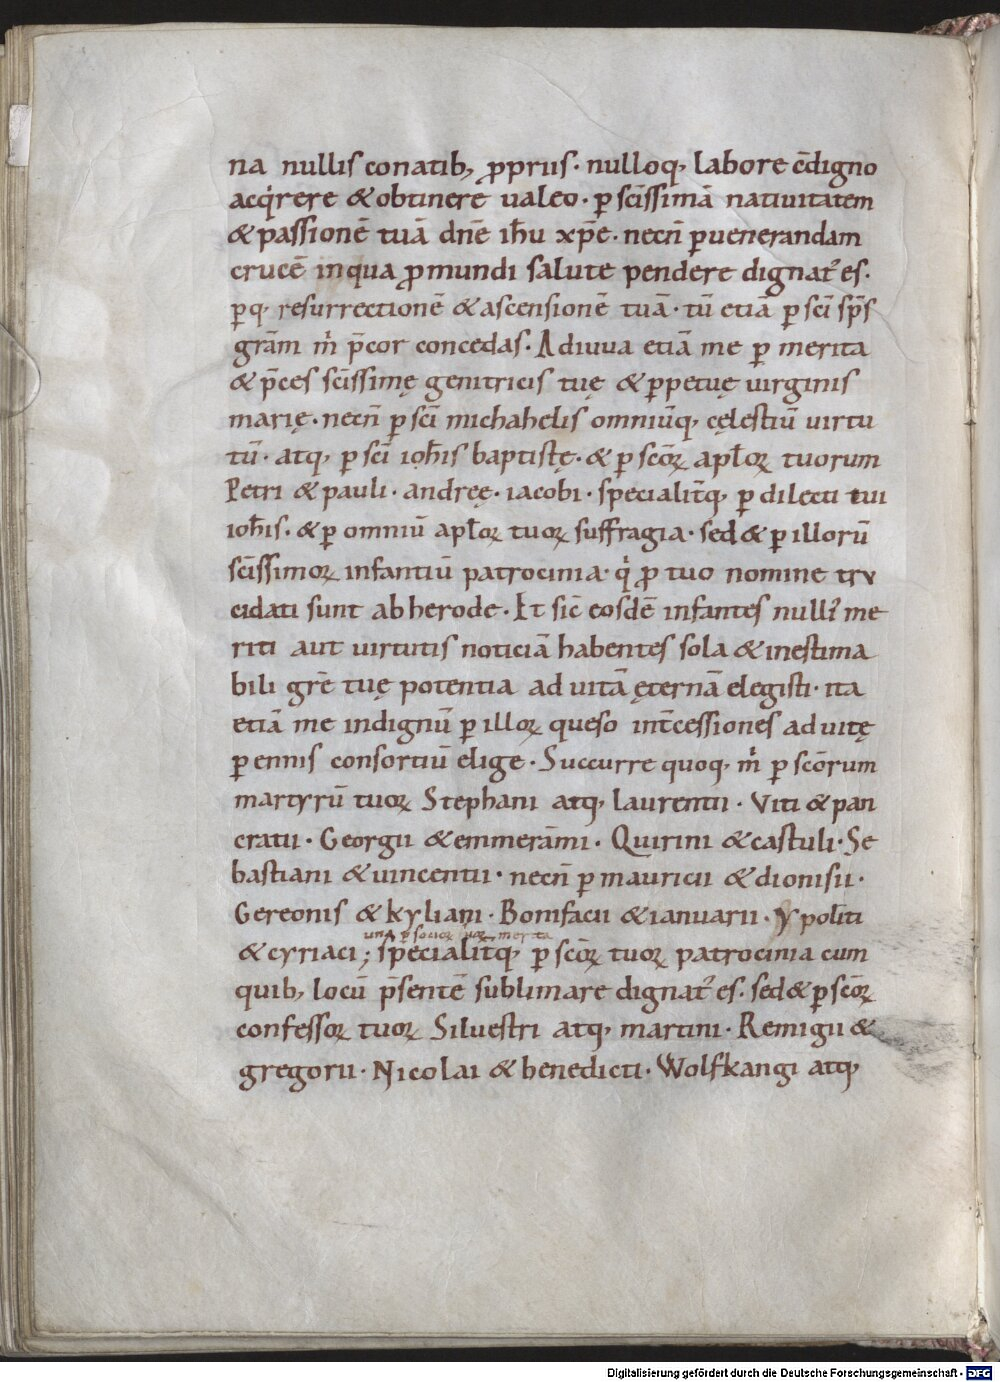 na nullis conatib; ꝓprus. nulloq; labore c̄digno
acq̇rere & obtinere ualeo. ꝑ sc̄issimā natiuitatem
& passionē tuā dn̄e ih̄u xp̄e. necn̄ ꝑ uenerandam
crucē in qua ꝓ mundi salute pendere dignat᷒ es.
ꝑq; resurrectionē & ascensionē tuā. tū etiā ꝑ sc̄i sp̄s
grām m̍ p̄cor concedas. Adiuua etiā me ꝑ merita
& p̄ces sc̄issimę genitricis tuę & ꝑpetuę uirginis
marię. necn̄ ꝑ sc̄i michahelis omniūq; cęlestiū uirtu
tū. atq; ꝑ sc̄i ioh̄is baptistę. & ꝑ sc̄oꝝ apl̄oꝝ tuorum
Petri & pauli. andreę. iacobi. specialit̄q; ꝑ dilecti tui
ioh̄is. & ꝑ omniū apl̄oꝝ tuoꝝ suffragia. sed & ꝑ illorū
sc̄issimoꝝ infantiū patrocinia. q̍ ꝓ tuo nomine tru
cidati sunt ab herode. Et sic̄ eosdē infantes null᷒ me
riti aut uirtutis noticiā habentes sola & inestima
bili gr̄e tuę potentia ad uitā ęternā elegisti. ita
etiā me indignū ꝑ illoꝝ queso int̄cessiones ad uitę
ꝑennis consortiū elige. Succurre quoq; m̍ ꝑ sc̄orum
martyrū tuoꝝ Stephani atq; laurentii. Viti & pan
cratii. Georgii & emmerāmi. Quirini & castuli. Se
bastiani & uincentii. necn̄ ꝑ mauricii & dionisii.
Gereonis & kyliani. Bonifacii & ianuarii. Ypoliti
una ꝑ socioꝝ suoꝝ merita
& cyriaci; specialit̄q; ꝑ sc̄oꝝ tuoꝝ patrocinia cum
quib; locū p̄sentē sublimare dignat᷒ es. sed & ꝑ sc̄oꝝ
confessoꝝ tuoꝝ Siluestri atq; martini. Remigii &
gregorii. Nicolai & benedicti. Wolfkangi atq;
Digitalisierung gefördert durch die Deutsche Forschungsgemeinschaft - DFG